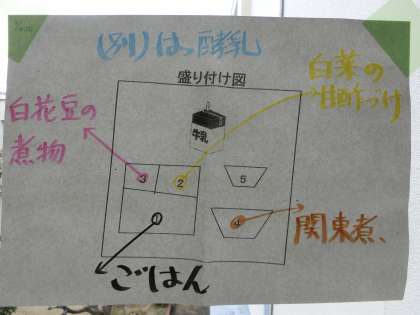 (別)は、酵乳
盛り付け図
白菜の
甘酢づけ
白花豆の
煮物
牛乳
3
2
5
1
4
関東煮、
ごはん